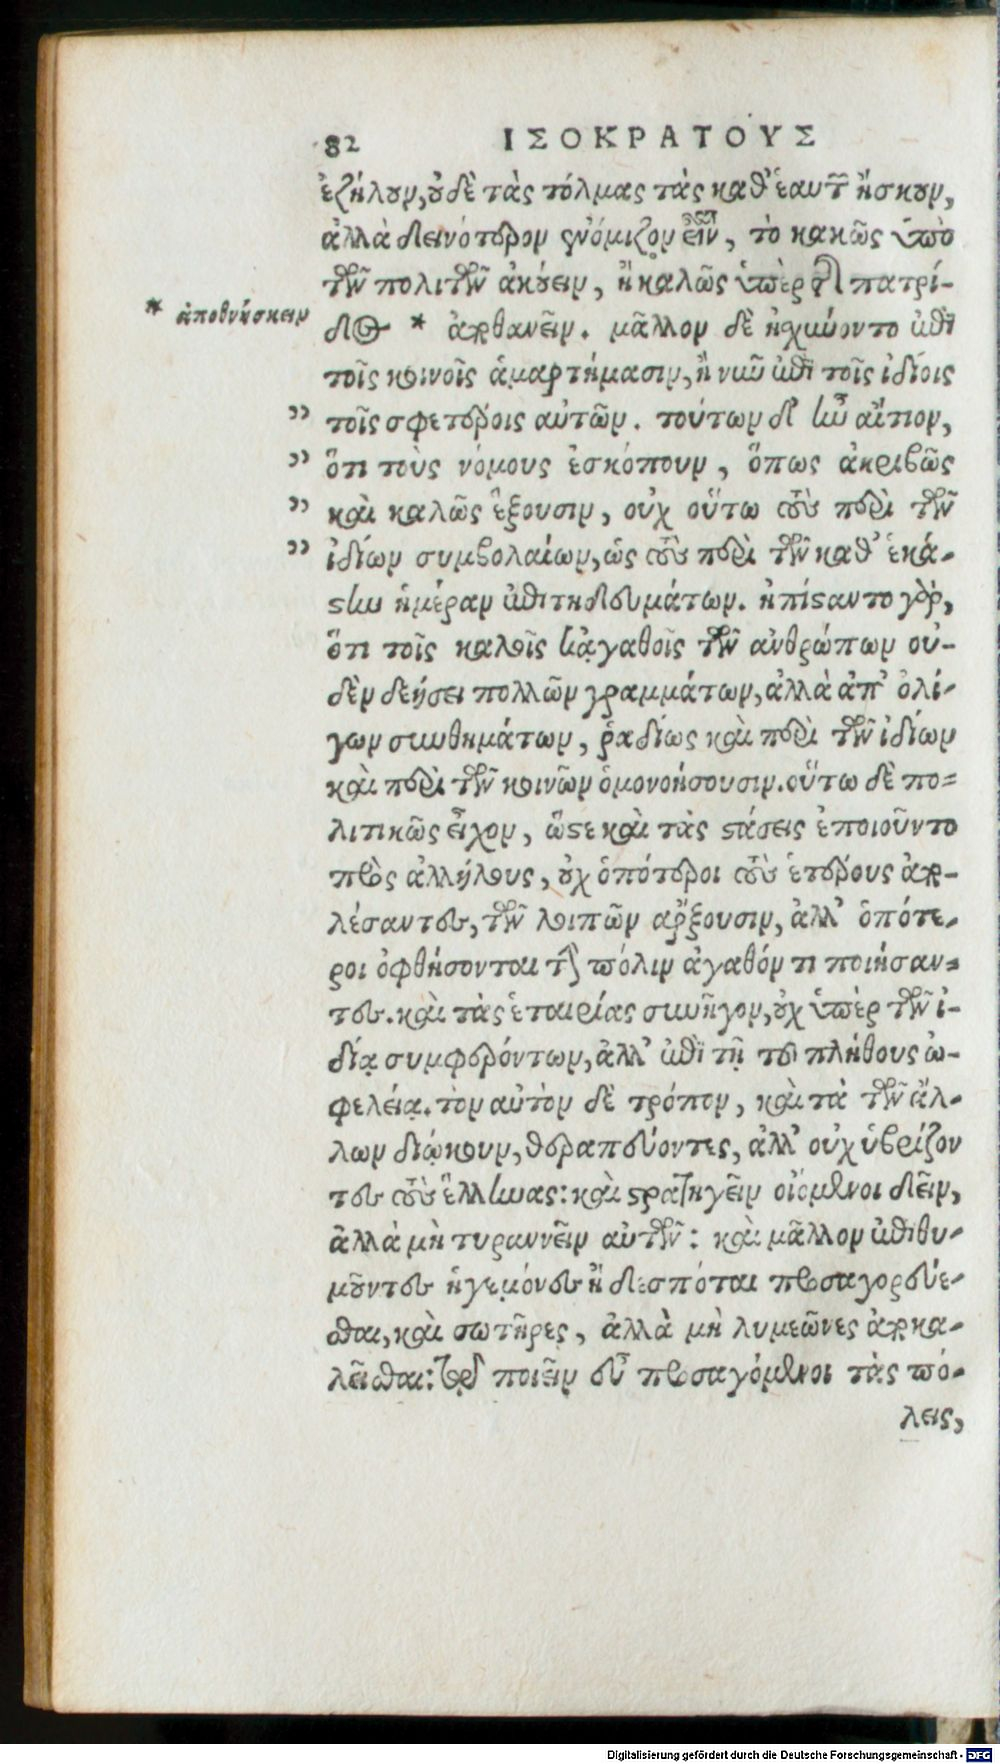 82 ΙΣΟΚΡΑΤΟΥΣ
ἐζήλουν, οὐδὲ τὰς τόλμας τὰς καθ' ἑαυτῶν ἤσκουν,
ἀλλὰ δεινότερον ἐνόμιζον εἶναι, τὸ κακῶς ὑπὸ
τῶν πολιτῶν ἀκούειν, ἢ καλῶς ὑπὲρ τῆς πατρί-
* ἀποθνήσκειν
δος * ἀποθανεῖν. μᾶλλον δὲ ᾐσχύνοντο ἐπὶ
τοῖς κοινοῖς ἁμαρτήμασιν, ἢ νῦν ἐπὶ τοῖς ἰδίοις
" τοῖς σφετέροις αὐτῶν. τούτων δ' ἦν αἴτιον,
" ὅτι τοὺς νόμους ἐσκόπουν, ὅπως ἀκριβῶς
" καὶ καλῶς ἕξουσιν, οὐχ οὕτω τοὺς περὶ τῶν
" ἰδίων συμβολαίων, ὡς τοὺς περὶ τῶν καθ' ἑκά-
στην ἡμέραν ἐπιτηδευμάτων. ἠπίσταντο γὰρ,
ὅτι τοῖς καλοῖς κἀγαθοῖς τῶν ἀνθρώπων οὐ-
δὲν δεήσει πολλῶν γραμμάτων, ἀλλὰ ἀπ' ὀλί-
γων συνθημάτων, ῥαδίως καὶ περὶ τῶν ἰδίων
καὶ περὶ τῶν κοινῶν ὁμονοήσουσιν. οὕτω δὲ πο-
λιτικῶς εἶχον, ὥστε καὶ τὰς στάσεις ἐποιοῦντο
πρὸς ἀλλήλους, οὐχ ὁπότεροι τοὺς ἑτέρους ἀπο-
λέσαντες, τῶν λοιπῶν ἄρξουσιν, ἀλλ' ὁπότε-
ροι ὀφθήσονται τὴν πόλιν ἀγαθόν τι ποιήσαν-
τες. καὶ τὰς ἑταιρίας συνῆγον, οὐχ ὑπὲρ τῶν ἰ-
δίᾳ συμφερόντων, ἀλλ' ἐπὶ τῇ τοῦ πλήθους ὠ-
φελείᾳ. τὸν αὐτὸν δὲ τρόπον, καὶ τὰ τῶν ἄλ-
λων διῴκουν, θεραπεύοντες, ἀλλ' οὐχ ὑβρίζον
τες τοὺς ἕλληνας: καὶ στρατηγεῖν οἰόμενοι δεῖν,
ἀλλὰ μὴ τυραννεῖν αὐτῶν: καὶ μᾶλλον ἐπιθυ-
μοῦντες ἡγεμόνες ἢ δεσπόται προσαγορεύε-
σθαι, καὶ σωτῆρες, ἀλλὰ μὴ λυμεῶνες ἀποκα-
λεῖσθαι: τῷ ποιεῖν εὖ προσαγόμενοι τὰς πό-
λεις,
Digitalisierung gefördert durch die Deutsche Forschungsgemeinschaft - DFG